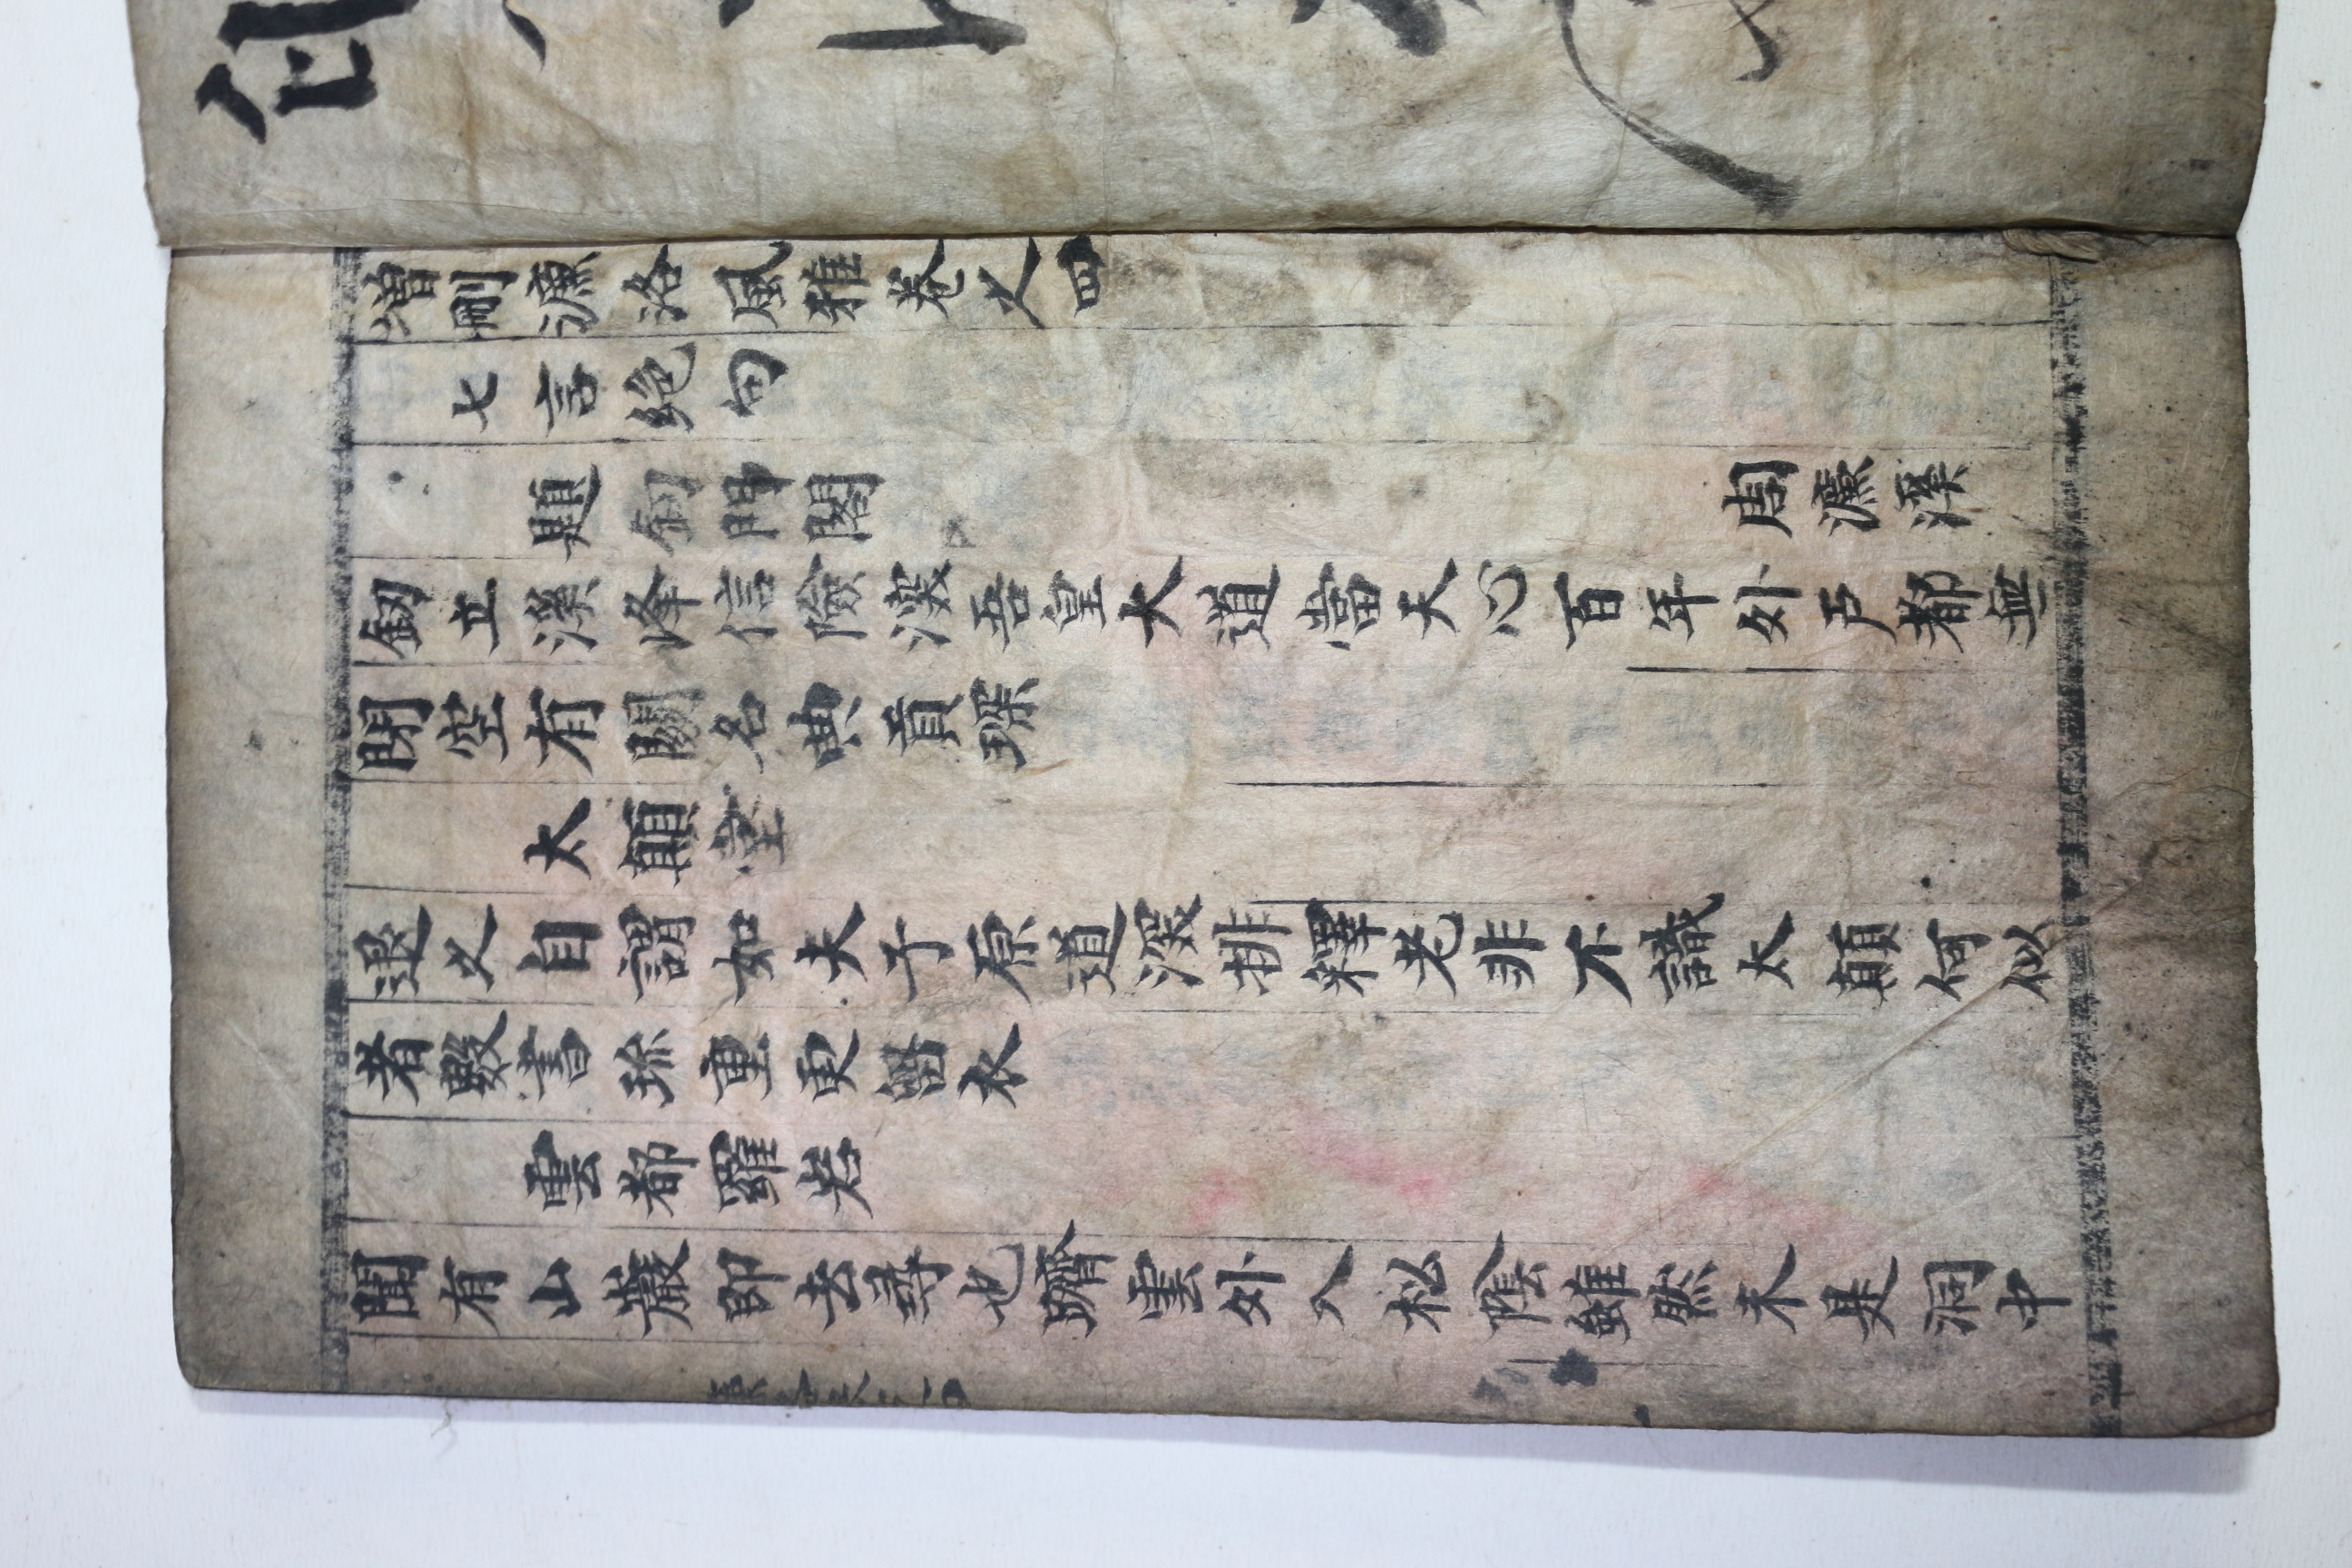 增刪濂洛風雅卷之四
七言絶句
題釰門閣 周濂溪
釰立溪峰信險深吾皇大道當天心百年外戶都無
閉空有關名典貢琛
太顚堂
退之自謂如夫子原道深排釋老非不識太顚何似
者數書珎重更留衣
雲都羅岩
聞有山巖卽去尋也躋雲外入松陰雖然未是洞中